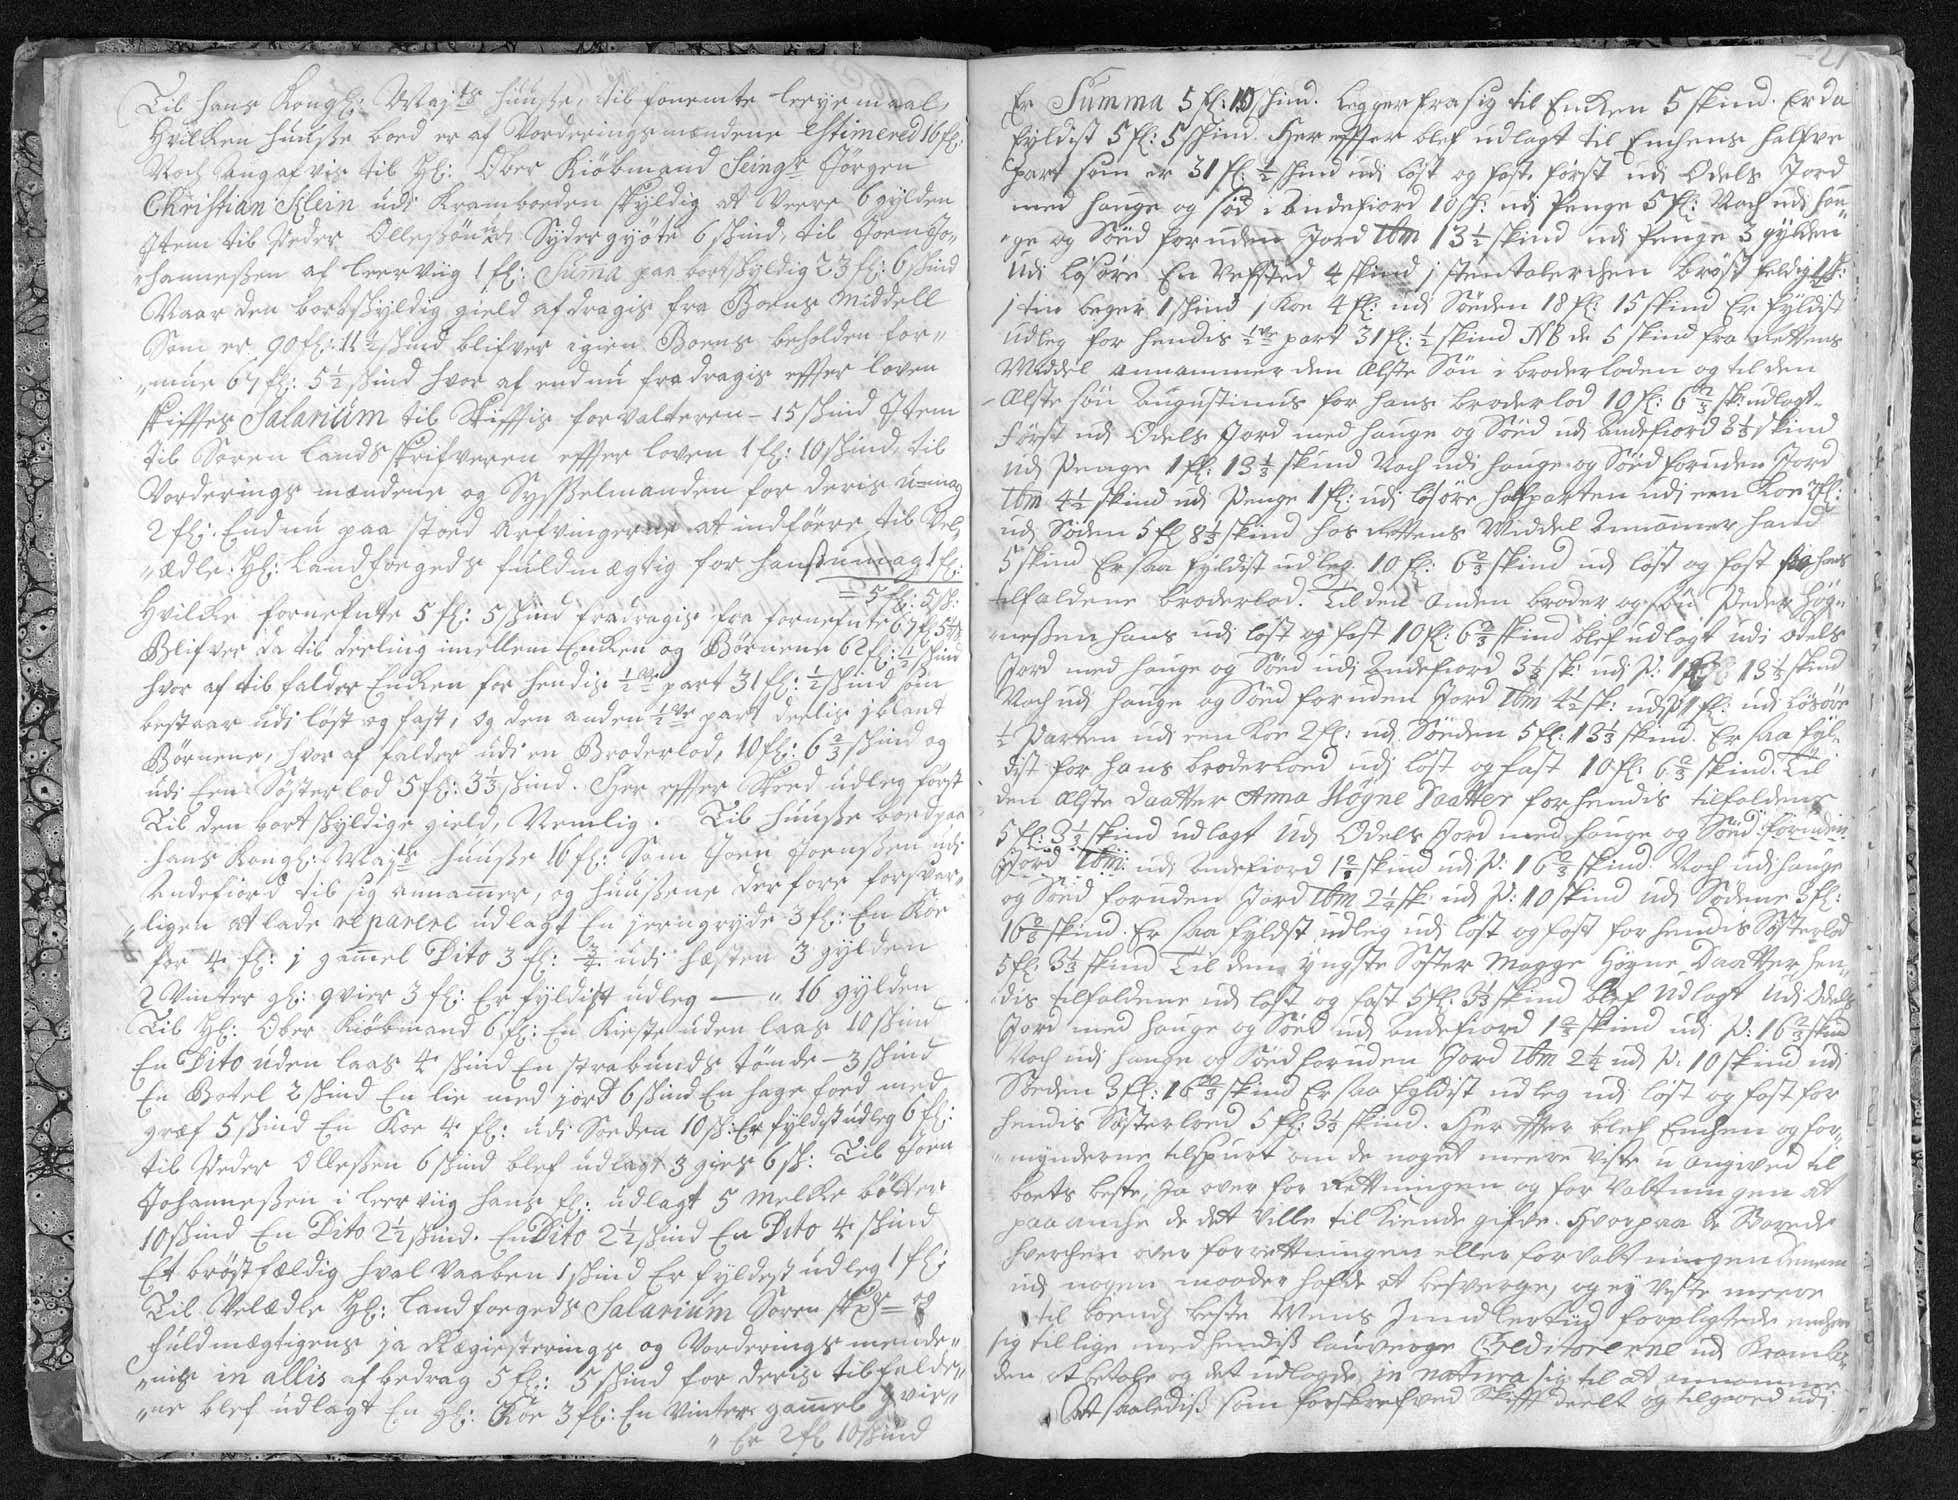 Til hans Kongl: Majts huuse, til fornemte leeyemaal,
Hvilken huuse boed er af Vorderingsmendene Estimered 16 fl:
Noch angafvis til Hl: Ober Kiöbmand Seingr Jörgen
Christian Klein udi Kramboeden skyldig at Veere 6 gylden
Item til Peder Ollessön udi Sydergyöte 6 skind, til Joen Jo„
„hannessen af leerviig 1 fl: Suma paa bortskyldig 23 fl: 6 skind
Naar den bortskyldig gield afdragis fra Boens Middell
Som er 90 fl: 11½ skind blifver igien Boens beholden for„
„mue 67 fl: 5½ skind hvor af endnu fradragis effter loven
skifftes Salarium til Skifftis forvalteren – 15 skind Item
til Soren landsskrifveren effter loven 1 fl: 10 skind, til
Vorderings mændene og Sysselmanden for deris u-mag
2 fl: Endnu paa stoed Arfvingerne at indföere til Vel„
„ædle Hl: Landfogeds fuldmægtig for hans umag 1 fl:
= 5 fl: 5 sk:
Hvilke fornefnte 5 fl: 5 skind fradragis fra fornefnte 67 fl 5½ sk
Blifver da til deeling imellem Enken og Börnene 62 fl: ½ skind
hvor af tilfalder Enken for hendis ½ve part 31 fl: ½ skind som
bestaar udi löst og fast, og den anden ½ve part deelis iblant
Börnene, hvor af falder udi en Broderlod, 10 fl: 6⅔ skind og
udi Een Sösterlod 5 fl: 3⅓ skind. Her effter Skeed udleg först
Til den bortskyldige gield, Nemlig. Til huuse boed paa
hans Kongl: Majts huuse 16 fl: Som Joen Joenssen udi
Andefiord til sig annamer, og huusene derfore forsvar„
„ligen at lade reparere udlagt En jerngryde 3 fl: En Koe
for 4 fl: 1 gamel Dito 3 fl: ¾ udi hæsten 3 gylden
2 Vinter gl: qvier 3 fl: Er fyldist udleg — „ 16 gylden
Til Hl: Ober Kiöbmand 6 fl: En Kieste uden laas 10 skind
En Dito uden laas 4 skind En strabunds tönde – 3 skind
En Botel 2 skind En lie med jord 6 skind En hage foed med
græf 5 skind En Koe 4 fl: udi Soeden 10 sk: Er fyldist udleg 6 fl:
til Peder Ollessen 6 skind blef udlagt 3 gies 6 sk: Til Joen
Johannessen i leerviig hans fl: udlagt 5 Melke bötter
10 skind En Dito 2½ skind. En Dito 2½ skind En Dito 4 skind
Et bröstfældig hval Vaaben 1 skind Er fyldest udleg 1 fl:
Til Velædle Hl: landfogeds Salarium Soren og
fuldmægtigens ja Regiesterings og Vorderings mende„
„nis in allis afbedrag 5 fl: 5 skind for deris tilfalde„
„ne blef udlagt En gl: Koe 3 fl: En Vinter gamel qvie„
„ Er 2 fl 10 skind
21
Er Summa 5 fl: 10 skind. Legger fra sig til Enken 5 skind. Er da
fyldist 5 fl: 5 skind. Her effter blef udlagt til Enchens halfve
part som er 31 fl: ½ skind udi löst og fast först udi Odels Jord
med hauge og söd i Andefiord 10 sk: udi Penge 5 fl: Noch udi hau„
„ge og Söed foruden Jord Ibm 13½ skind udi Penge 3 gylden
Udi lösöre En Vefsted 4 skind 1 stentalerchen bröstfeldig 1 sk:
1 tin beger 1 skind 1 Koe 4 fl: udi Söeden 18 fl: 15 skind Er fyldist
udleg for hendis ½ve part 31 fl: ½ skind NB de 5 skind fra Rettens
Middel annammer den Elste Sön i broderloden og til den
Elste sön Augustinus for hans broderlod 10 fl: 6⅔ sk: udlagt
Först udi Odels Jord med hauge og Söed udi Andefiord 3⅓ skind
udi Penge 1 fl: 13⅓ skind Noch udi hauge og Söed foruden Jord
Ibm 4½ skind udi Penge 1 fl: udi lösöre halfparten udi een Koe 2 fl:
udi Söden 5 fl 8⅓ skind hos Rettens Middel Annamer hand
5 skind Er saa fyldist udleg 10 fl: 6⅔ skind udi löst og fast paa hans
tilfaldene broderlod. Til den anden broder og sön Peder Högn„
„nessen hans udi löst og fast 10 fl: 6⅔ skind blef udlagt udi odels
Jord med hauge og Söed udi Andefiord 3⅓ sk: udi P: 1 fl 13⅓ skind
Noch udi hauge og Söed foruden Jord Ibm 4½ sk: udi P 1 fl: udi Lösöre
½ Parten udi een Koe 2 fl: udi Söeden 5 fl: 13⅓ skind. Er saa fyl„
dist for hans broderloed udi löst og fast 10 fl: 6⅔ skind. Til
den Elste daatter Anna Högne Daatter for hendis tilfaldene
5 fl: 3⅓ skind udlagt udi Odels Jord med hauge og Söed foruden
Jord Ibm: udi Andefiord 1⅔ skind udi P: 16⅔ skind. Noch udi hauge
og Söed foruden Jord Ibm 2¼ sk: udi P: 10 skind udi Södene 3 fl:
16⅔ skind. Er saa fyldist udleg udi löst og fast for hendis Sösterlod
5 fl: 3⅓ skind Til den yngste Söster Magge Högne Daatter hen„
dis tilfaldene udi löst og fast 5 fl: 3⅓ skind blef udlagt udi Odels
Jord med hauge og Söed udi andefiord 1⅔ skind udi P: 16⅔ skind
Noch udi hauge og Söed foruden Jord Ibm 2¼ udi P: 10 skind udi
Söeden 3 fl: 16⅔ skind Er saa fyldist udleg udi löst og fast for
hendis Sösterloed 5 fl: 3⅓ skind. Her effter blef Enchen og for„
„mynderne tilspurt om de noget meere viste u angived til
boets beste, Ja over forRettningen og forvaltningen at
paa anche de det ville tilkiende gifve. Hvorpaa de Svarede
hverchen over forrettningen eller forvaltningen denem
udi nogen maader hafde at besverge, og ey viste meere
til boends beste Mens Imidlertiid forpligtede enchen
sig tillige med hendis lauverge Creditorerne udi Krambo„
den at betale og det udlagde in natura sig til at annamme
At saaledis som forskrefved Skifft deelt og tilgaaed udi